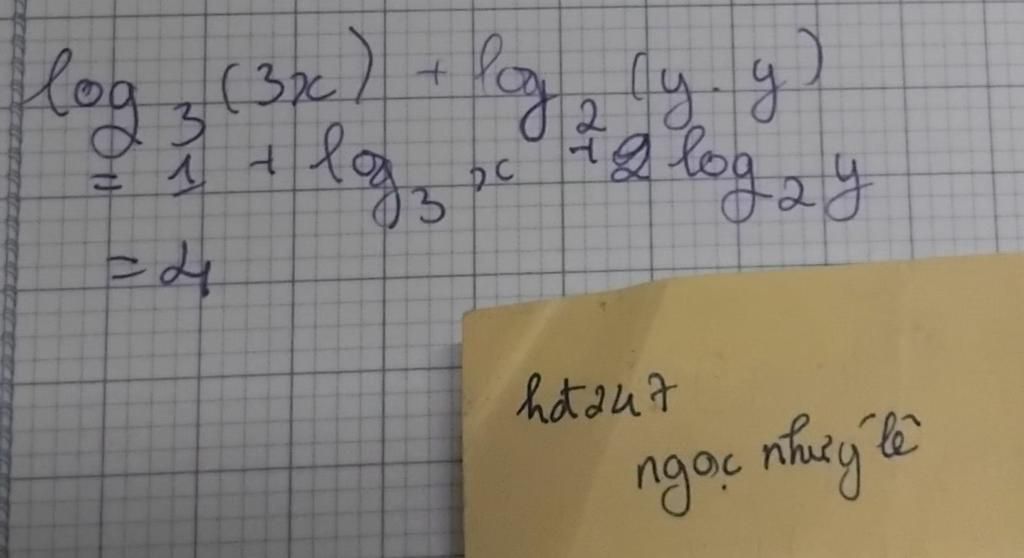 log₃(3x) + log₂(y.y)
= 1 + log₃ x + 2 log₂ y
= 4
hđ247
ngọc như ý lê